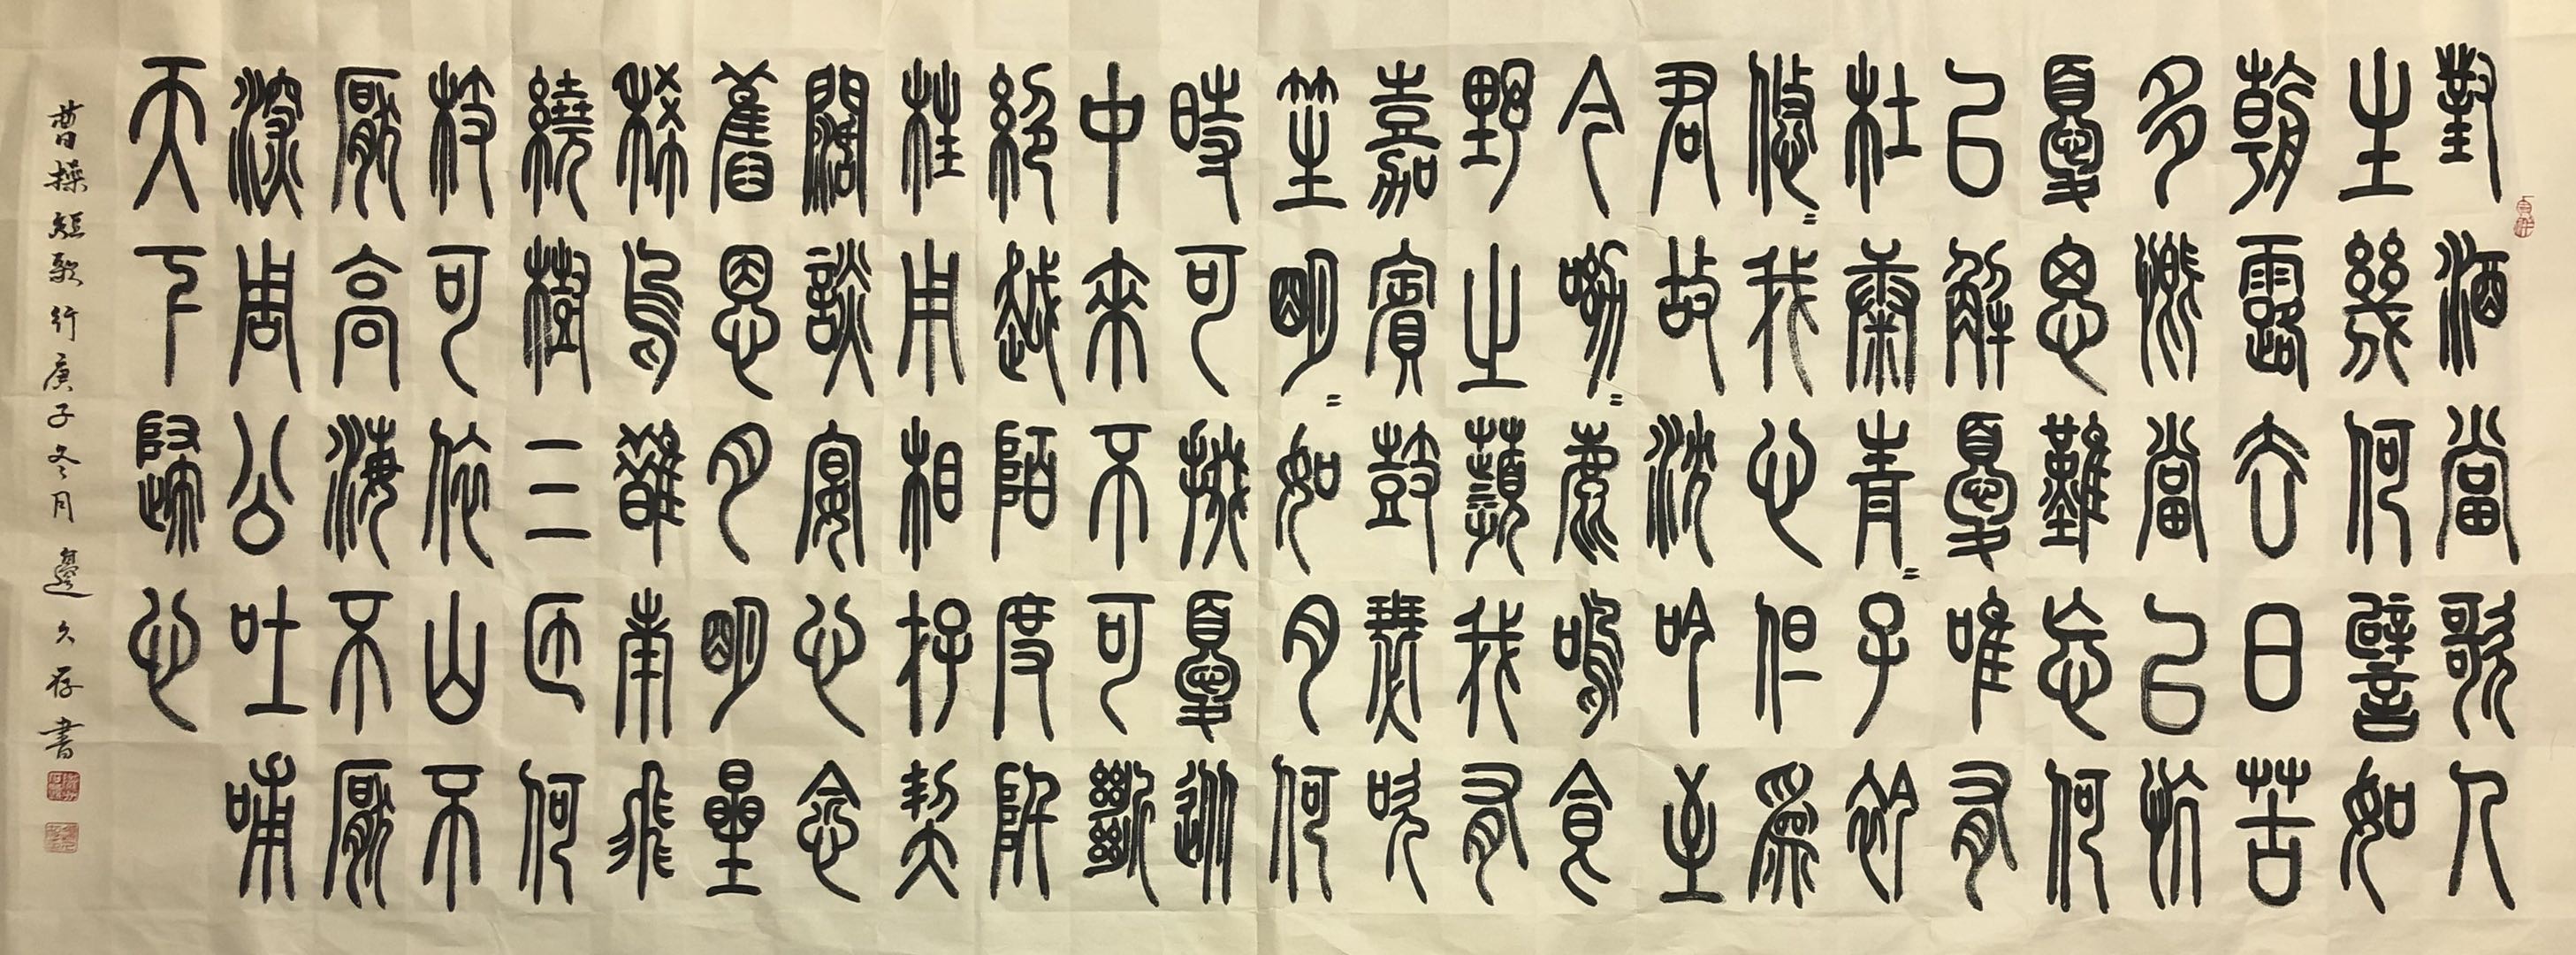 對酒當歌人
生幾何譬如
朝露去日苦
多慨當以忼
憂思難忘何
以解憂唯有
杜康青=子衿
悠=我心但爲
君故沈吟至
今呦=鹿鳴食
野之蘋我有
嘉賓鼓瑟吹
笙明=如月何
時可掇憂從
中來不可斷
絕越陌度阡
枉用相存契
闊談宴心念
舊恩月明星
稀烏鵲南飛
繞樹三匝何
枝可依山不
厭高海不厭
深周公吐哺
天下歸心
曹操短歌行庚子冬月邊久存書